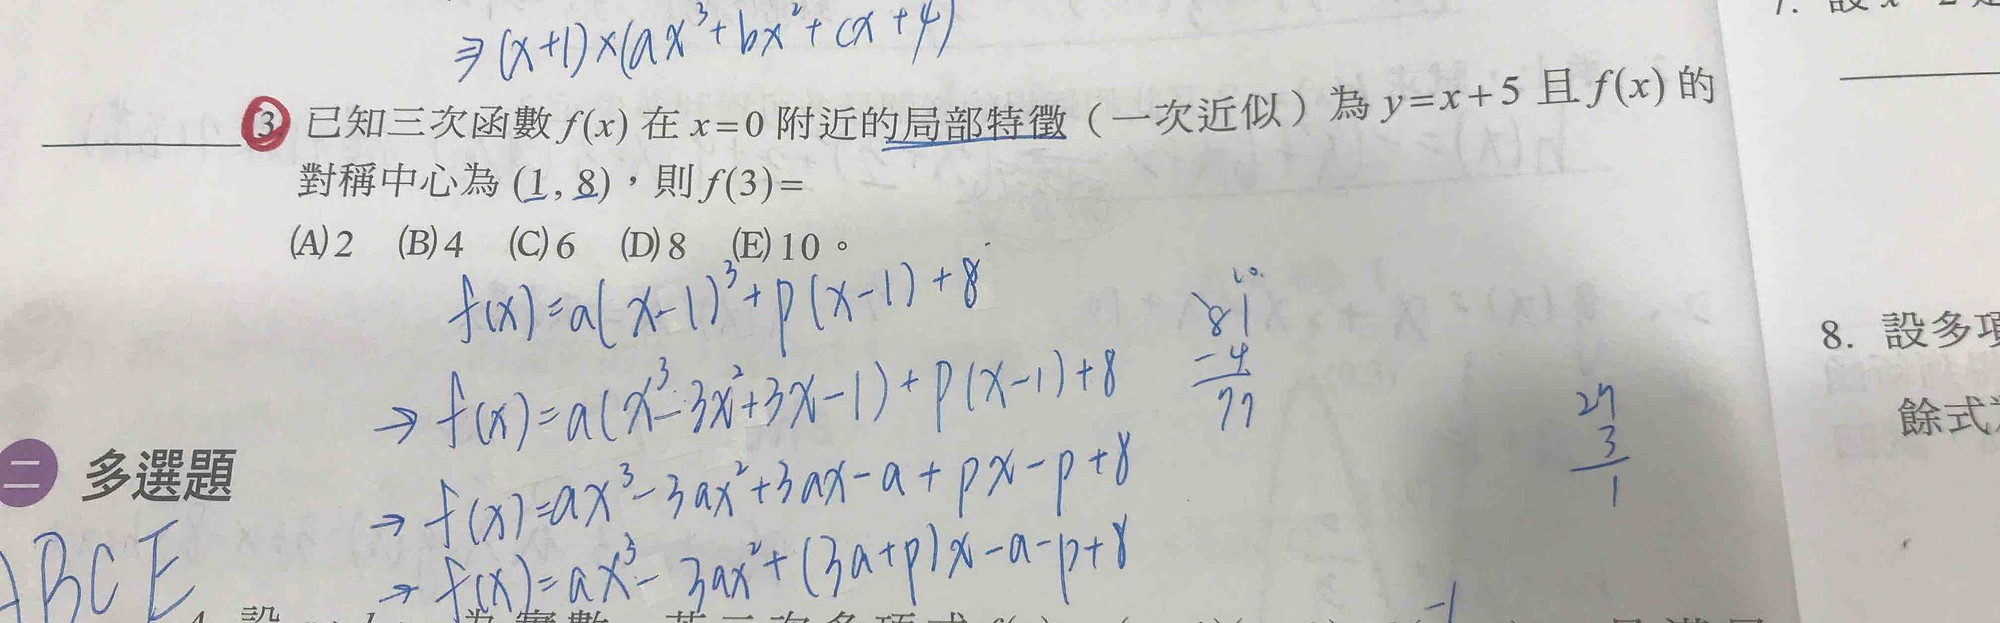 ⇒(x+1)×(ax³+bx²+cx+4)
3. 已知三次函數 f(x) 在 x=0 附近的局部特徵（一次近似）為 y=x+5 且 f(x) 的
對稱中心為 (1, 8)，則 f(3)=
(A) 2 (B) 4 (C) 6 (D) 8 (E) 10。
f(x)=a(x-1)³+p(x-1)+8
→ f(x)=a(x³-3x²+3x-1)+p(x-1)+8
→ f(x)=ax³-3ax²+3ax-a+px-p+8
→ f(x)=ax³-3ax²+(3a+p)x-a-p+8
81
-4
77
27
3
1
二 多選題
ABCE
8. 設多項
餘式